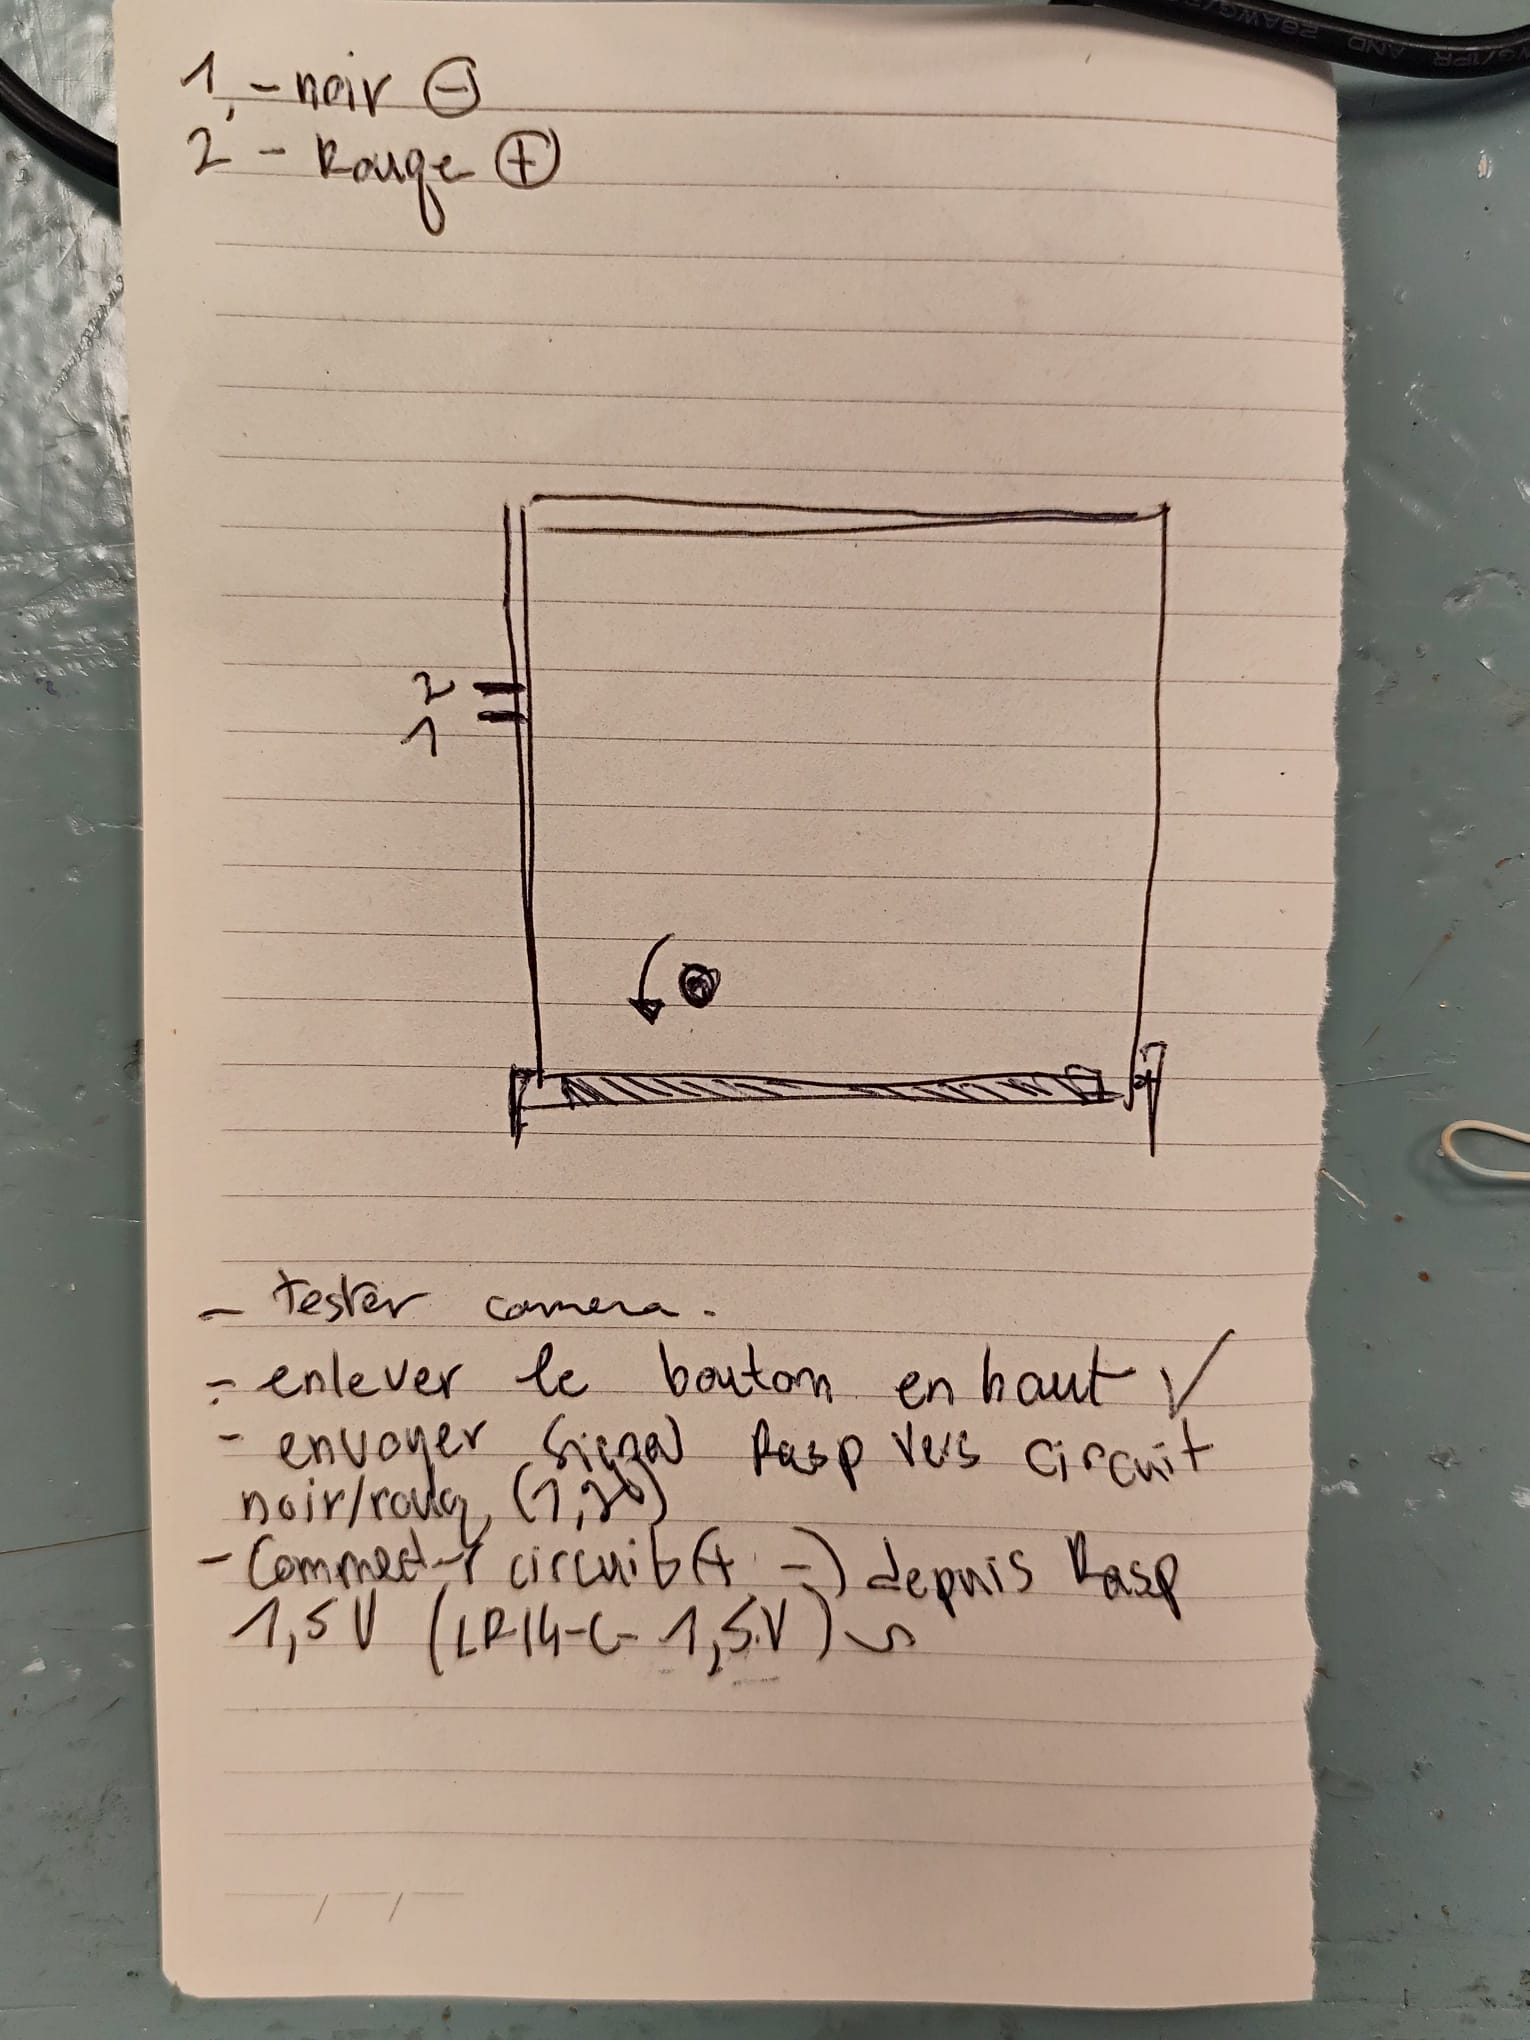 1 - noir ⊖
2 - Rouge ⊕
2
1
- tester camera.
- enlever le bouton en haut ✓
- envoyer signal Rasp vers circuit
noir/roug (1,2)
- Connecter circuit (+ -) depuis Rasp
1,5 V (LR14-C- 1,5.V)